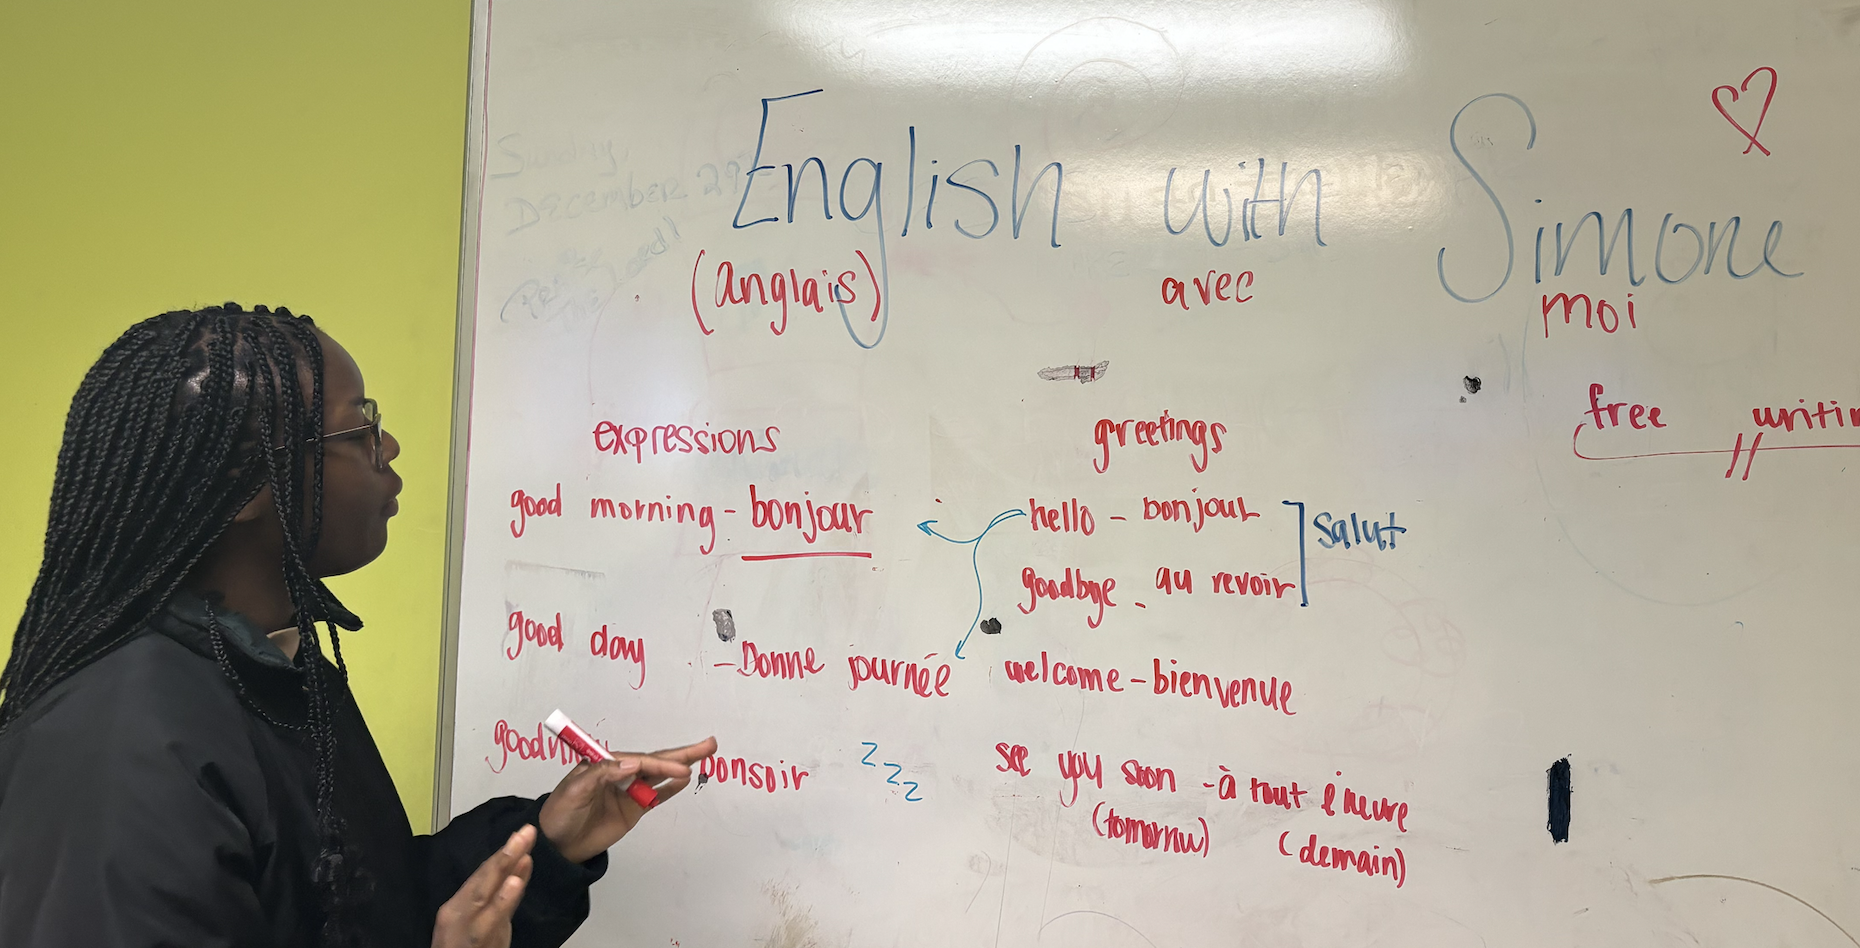 Sunday,
December 29
English with Simone
(anglais) avec moi
free
expressions
good morning - bonjour
good day - Bonne journée
bonsoir zzz
greetings
hello - bonjour
goodbye - au revoir
salut
welcome - bienvenue
see you soon - à tout
(tomorrow) (demain)